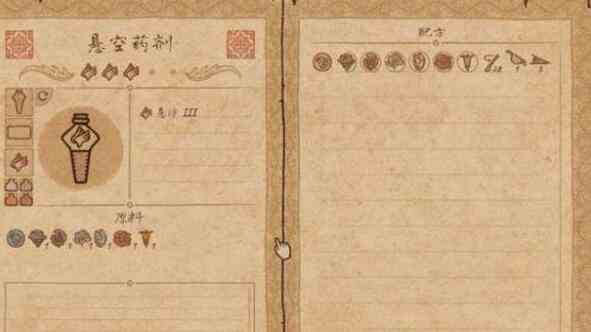 悬空药剂
悬浮 III
原料
配方